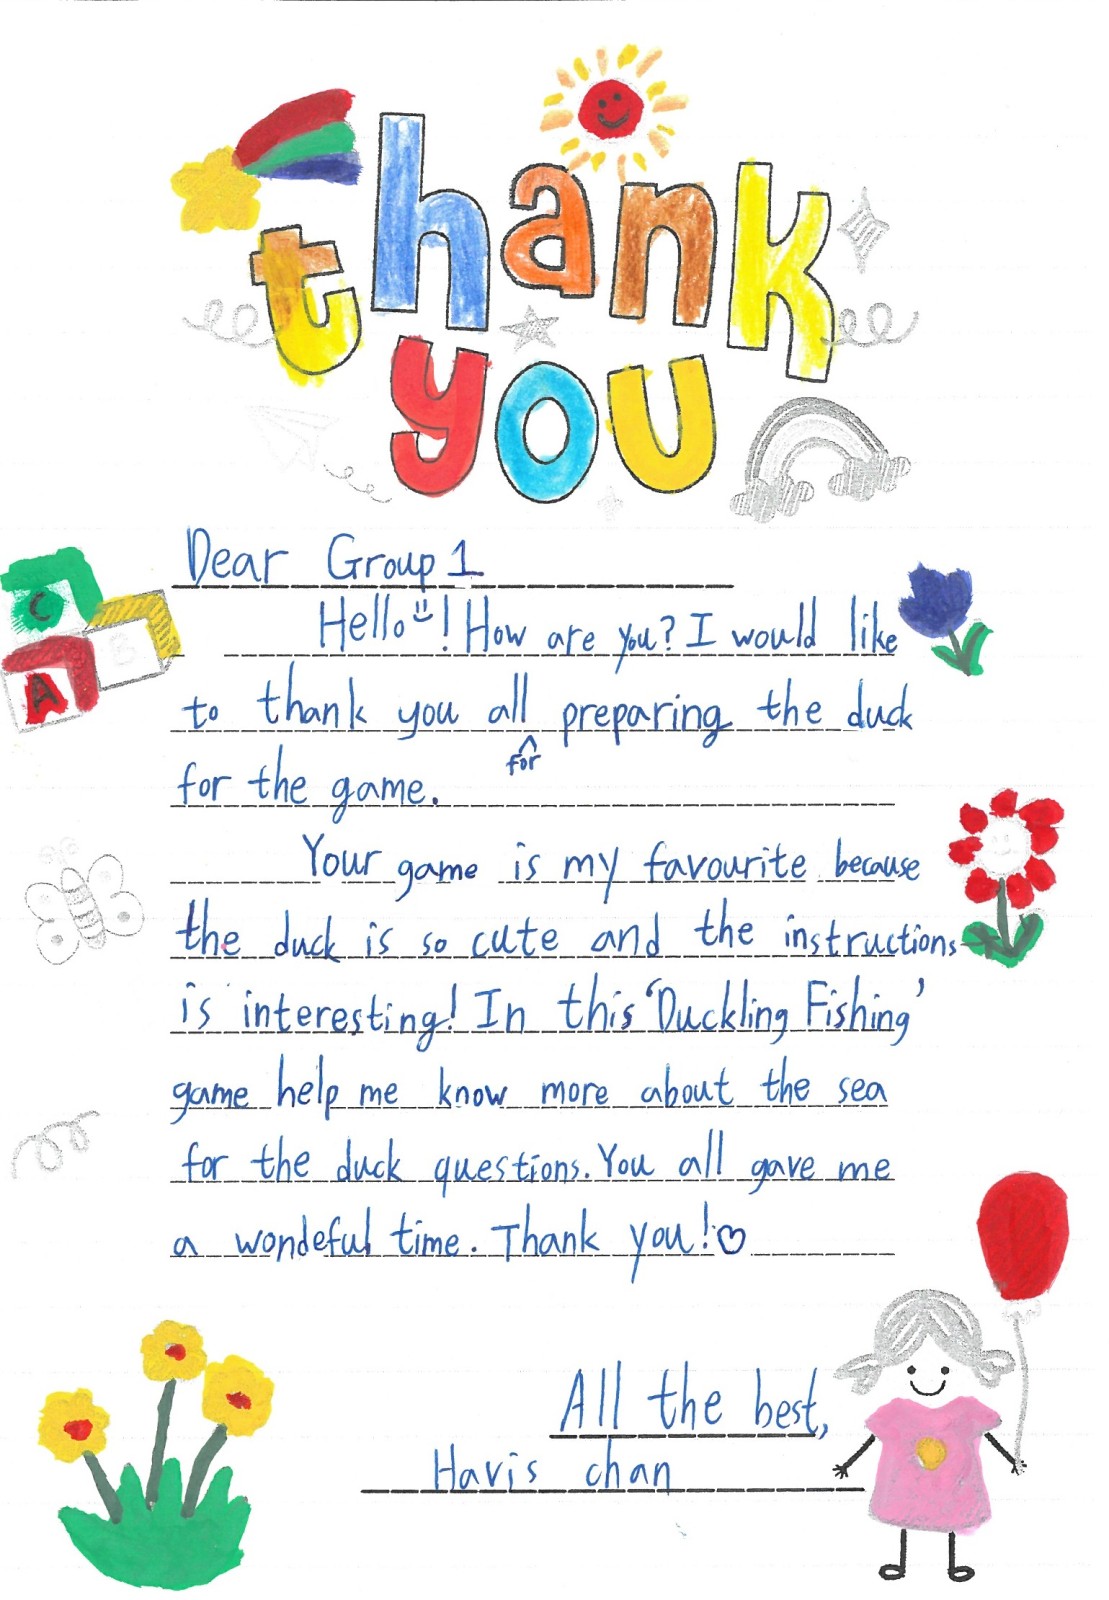 thank
you
Dear Group 1
Hello! How are you? I would like
to thank you all for preparing the duck
for the game.
Your game is my favourite because
the duck is so cute and the instructions
is interesting! In this 'Duckling Fishing'
game help me know more about the sea
for the duck questions. You all gave me
a wondeful time. Thank you!♡
All the best,
Havis chan
C
B
A